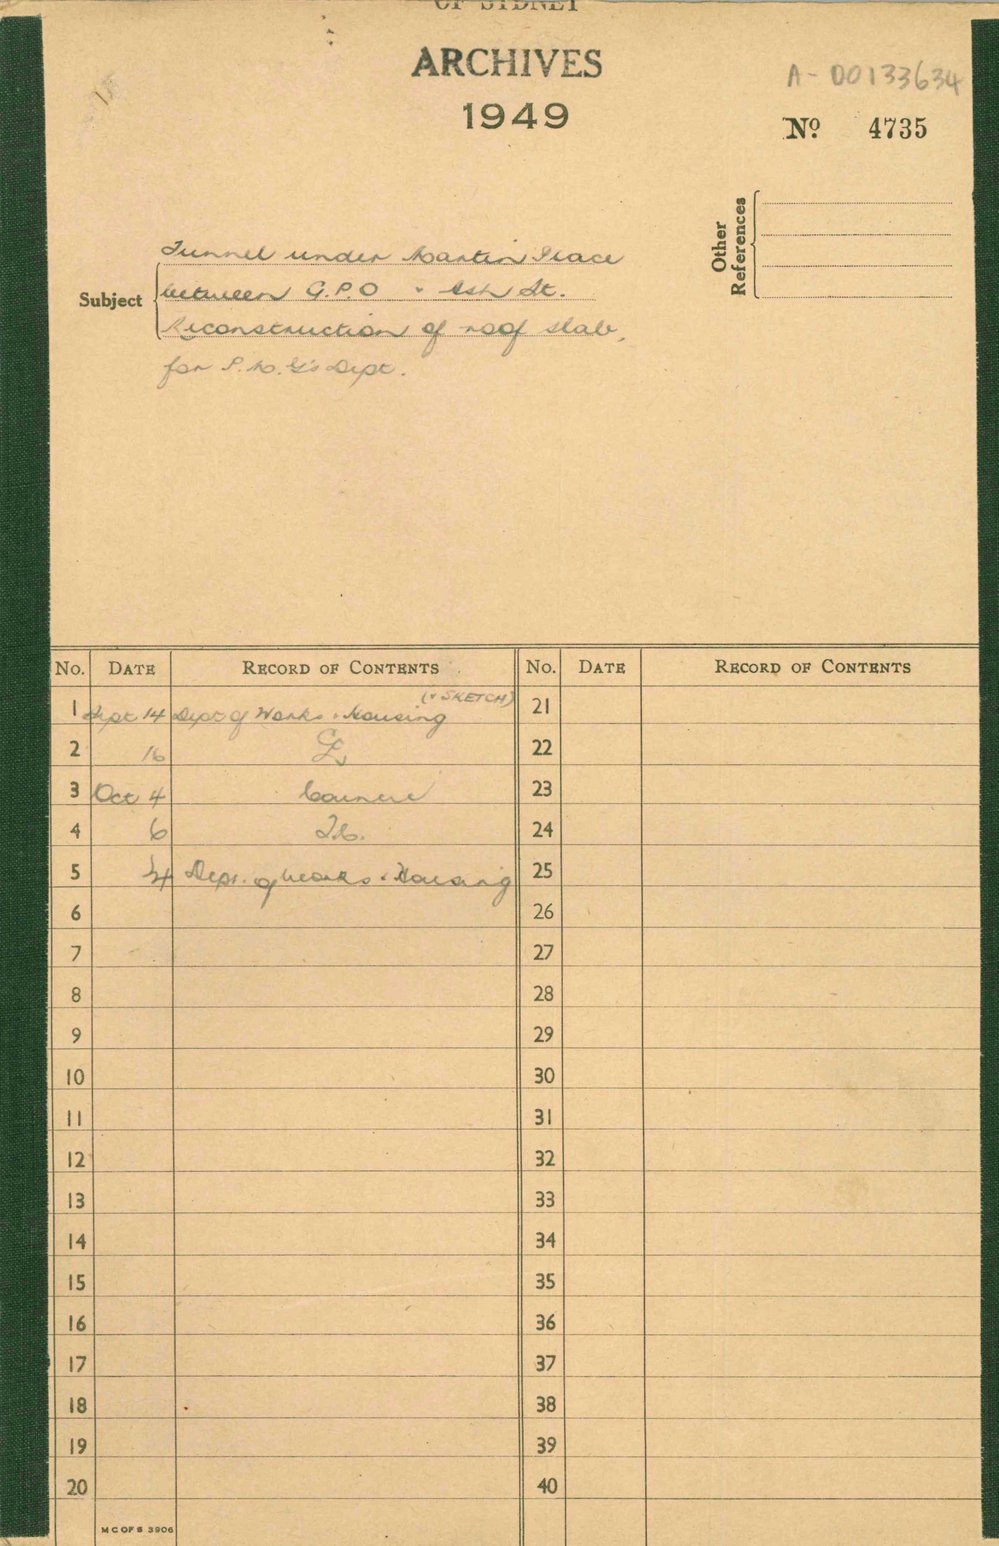 OF SYDNEY
ARCHIVES
1949
A- 00133634
No 4735
Other References
Subject
Tunnel under Martin Place
between G.P.O & Ash St.
Reconstruction of roof slab,
for P.M.G's Dept.
No. DATE RECORD OF CONTENTS No. DATE RECORD OF CONTENTS
(& SKETCH)
1 Sept 14 Dept of Works & Housing 21
2 16 22
3 Oct 4 Council 23
4 6 T.C. 24
5 Dept. of Works & Housing 25
6 26
7 27
8 28
9 29
10 30
11 31
12 32
13 33
14 34
15 35
16 36
17 37
18 38
19 39
20 40
M C OF S 3906